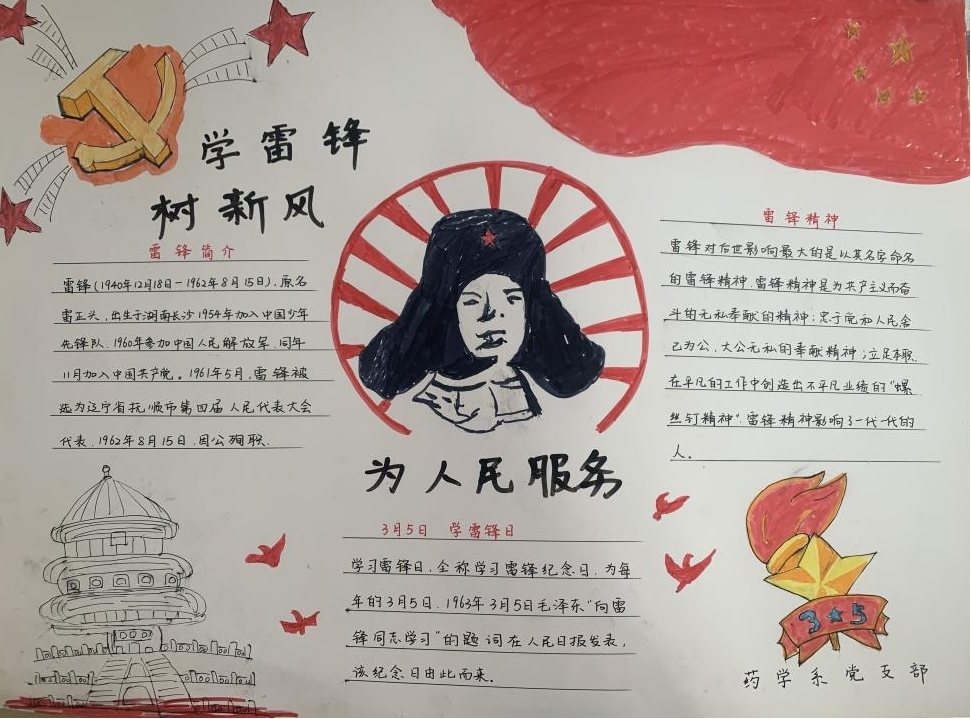 学雷锋
树新风
雷锋简介
雷锋(1940年12月18日-1962年8月15日),原名
雷正兴,出生于湖南长沙1954年加入中国少年
先锋队.1960年参加中国人民解放军,同年
11月加入中国共产党。1961年5月,雷锋被
选为辽宁省抚顺市第四届人民代表大会
代表.1962年8月15日,因公殉职.
为人民服务
3月5日 学雷锋日
学习雷锋日,全称学习雷锋纪念日,为每
年的3月5日.1963年3月5日毛泽东"向雷
锋同志学习"的题词在人民日报发表,
该纪念日由此而来.
雷锋精神
雷锋对后世影响最大的是以其名字命名
的雷锋精神.雷锋精神是为共产主义而奋
斗的无私奉献的精神;忠于党和人民舍
己为公,大公无私的奉献精神;立足本职.
在平凡的工作中创造出不平凡业绩的"螺
丝钉精神".雷锋精神影响了一代一代的
人.
3★5
药学系党支部